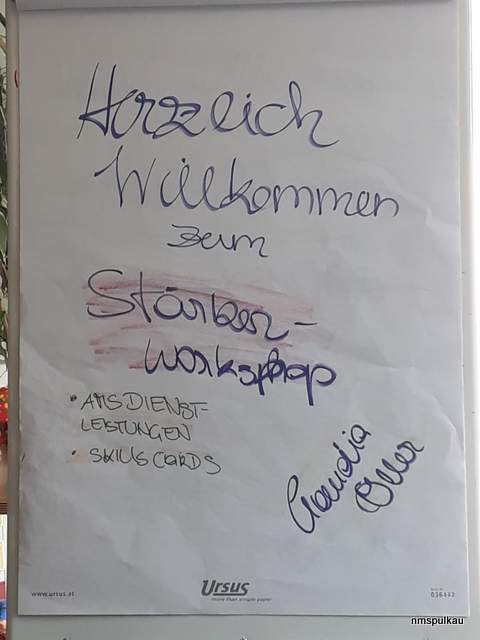 Herzlich
Willkommen
zum
Stärken-
workshop
• AMS DIENST-
LEISTUNGEN
• SKILLS CARDS
Claudia
www.ursus.at
Ursus
more than simple paper
036442
nmspulkau